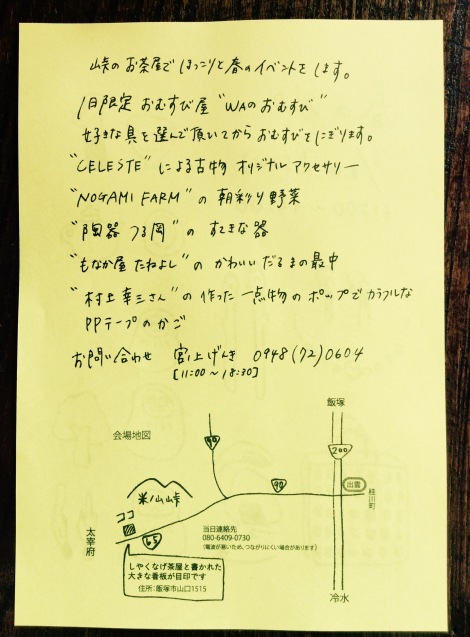 峠のお茶屋でほっこりと春のイベントをします。
1日限定 おむすび屋 "WAのおむすび"
好きな具を選んで頂いてからおむすびをにぎります。
"CELESTE" による古物 オリジナル アクセサリー
"NOGAMI FARM" の 朝彩り野菜
"陶器 つる岡" の すてきな器
"もなか屋 たねよし" の かわいい だるまの最中
"村上幸三さん" の 作った 一点物の ポップで カラフルな
PPテープのかご
お問い合わせ 宮上げんき 0948(72)0604
[11:00〜18:30]
飯塚
会場地図
200
90
出雲
桂川町
米ノ山峠
ココ
65
太宰府
当日連絡先
080-6409-0730
(電波が悪いため、つながりにくい場合があります)
しゃくなげ茶屋と書かれた
大きな看板が目印です
住所：飯塚市山口1515
冷水